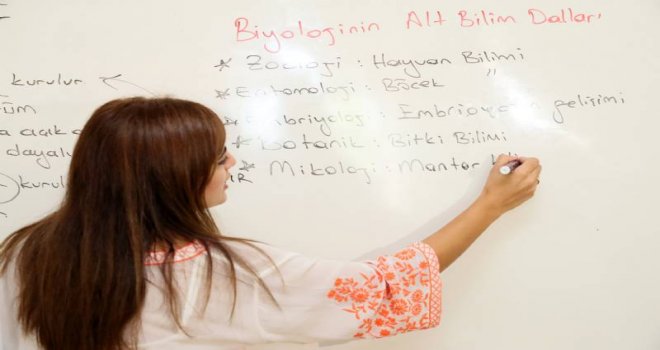 Biyolojinin Alt Bilim Dalları
* Zooloji : Hayvan Bilimi
* Entomoloji : Böcek "
* Embriyoloji : Embriyonun gelişimi
* Botanik : Bitki Bilimi
* Mikoloji : Mantar
kurulur
açık
dayalı
kurul
IR